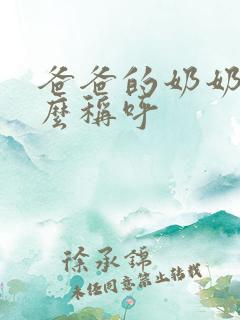 爸爸的奶奶
麼稱呼
徐承錦
未经同意禁止转载